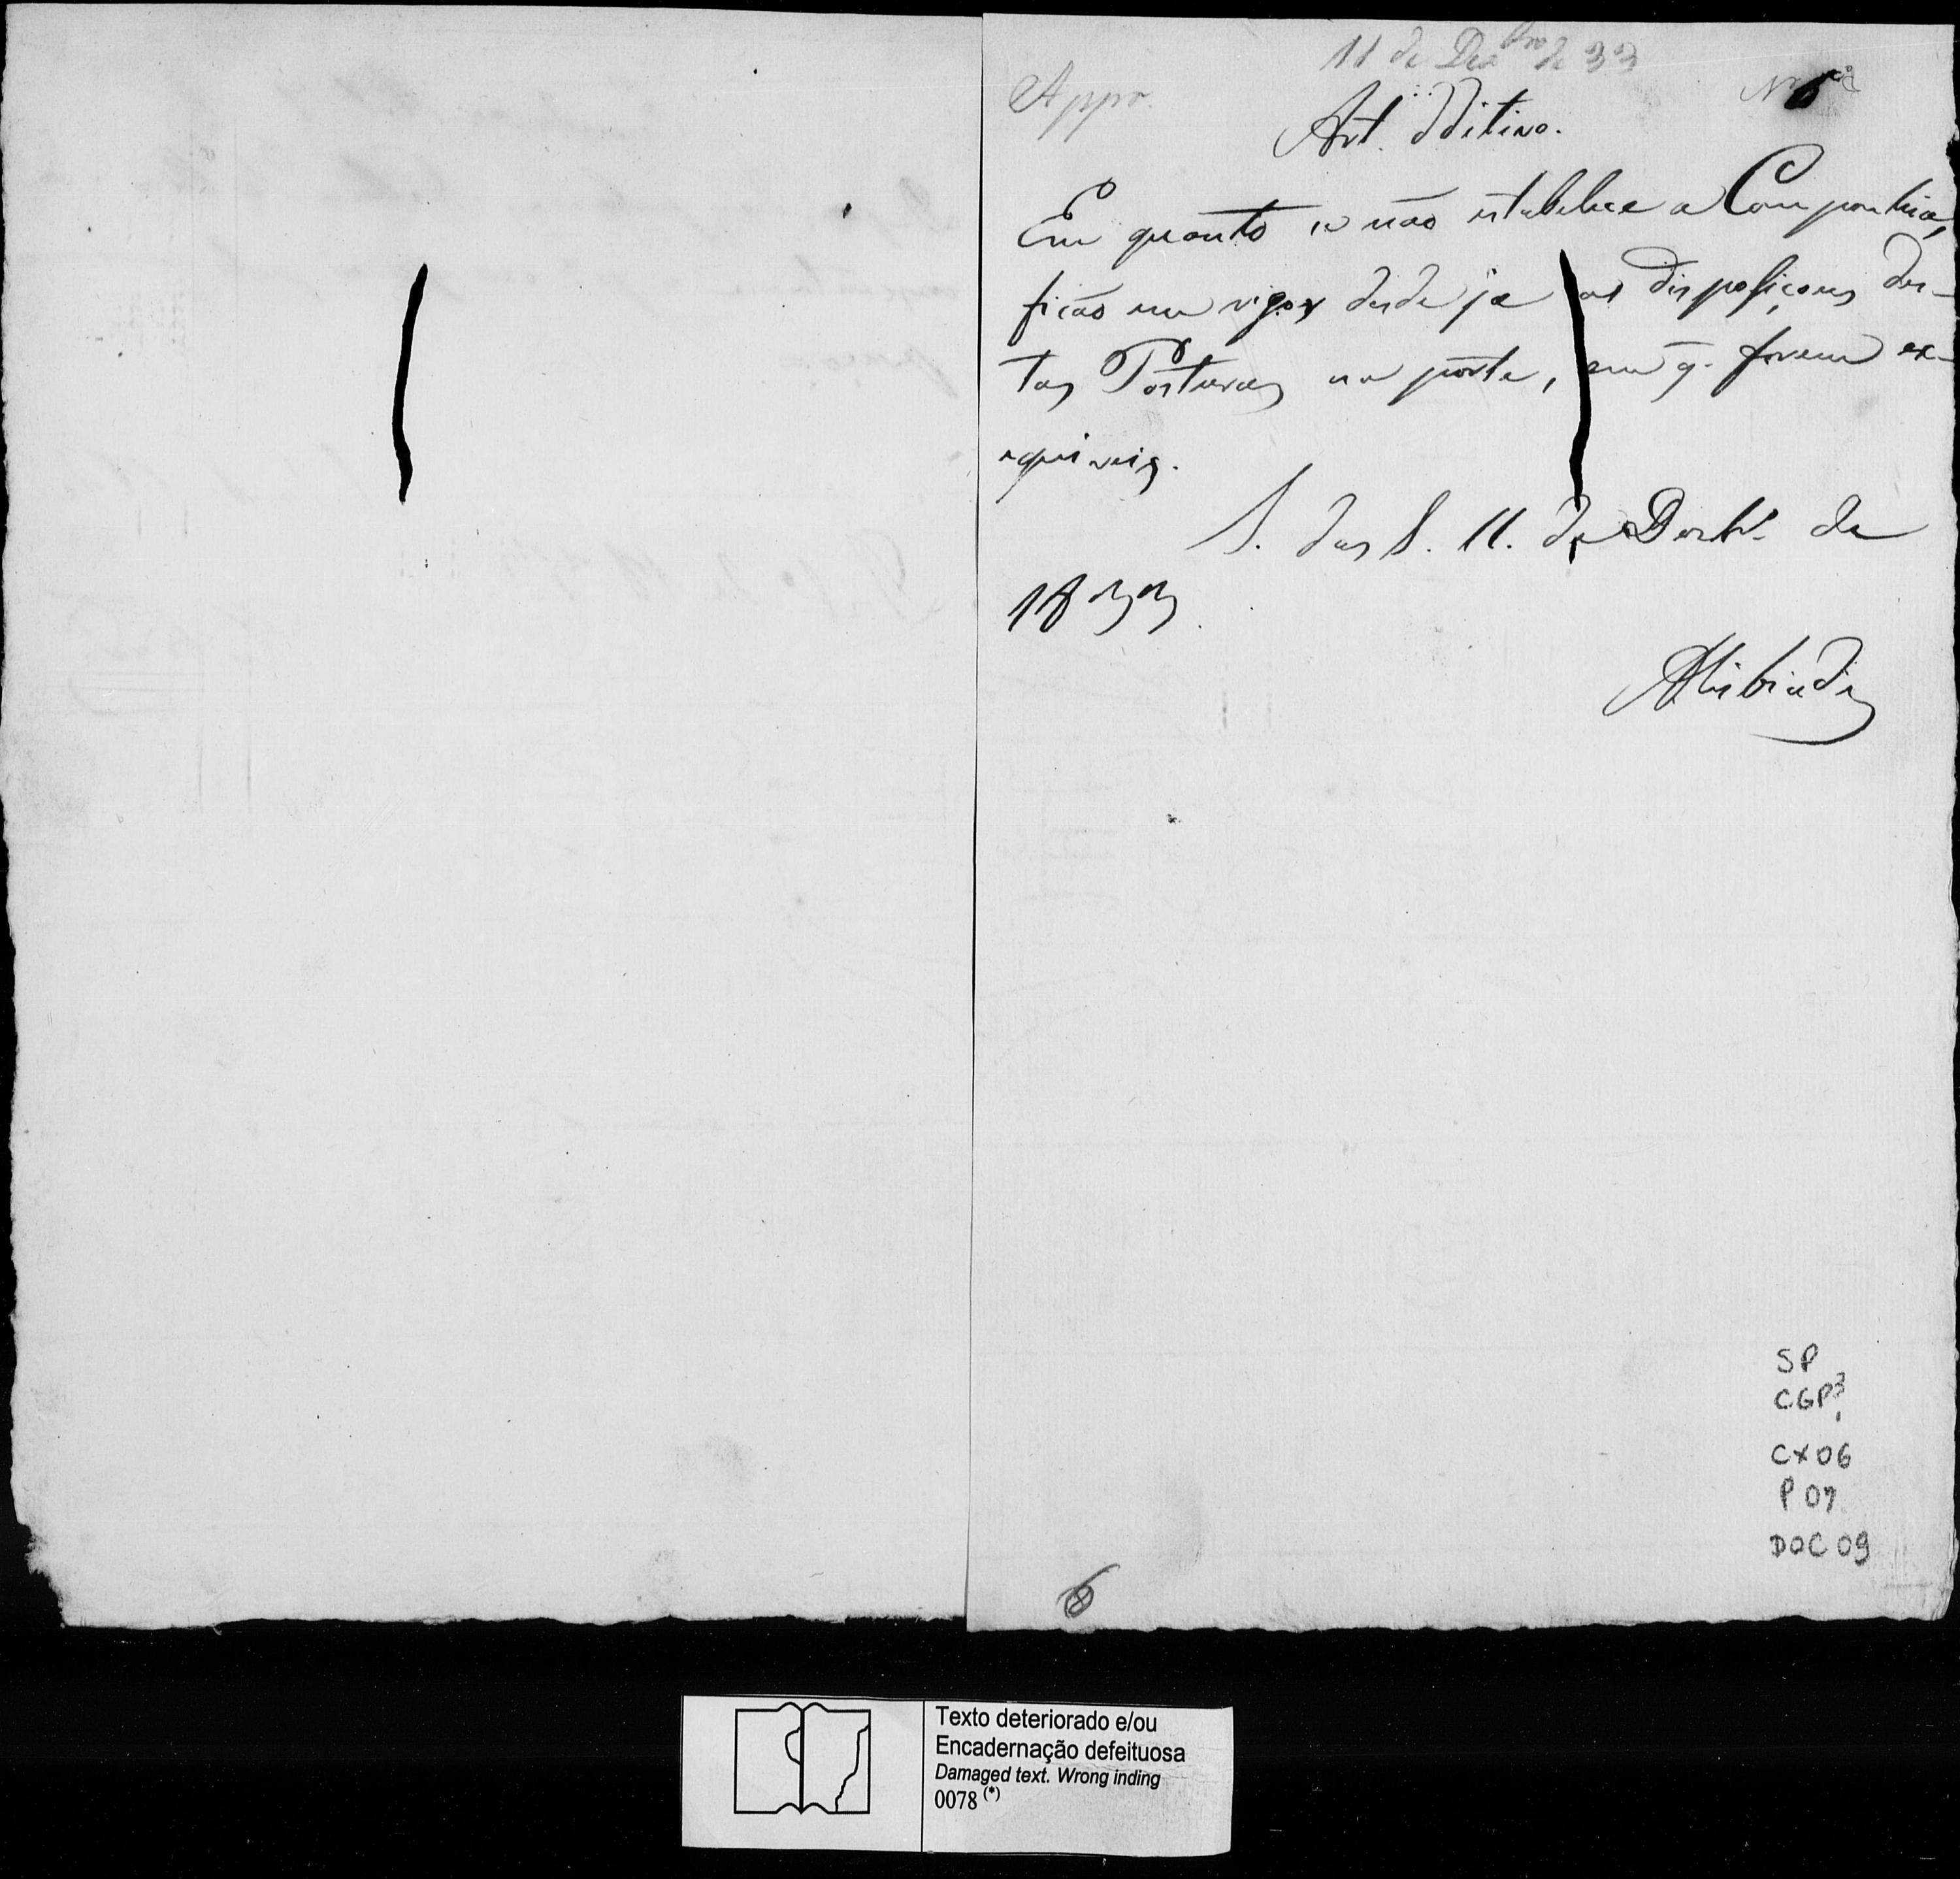 11 de Dezbro de 33
Appr. Nº 6
Art. Additivo.
Em quanto se não estabelece a Companhia,
ficão em vigor desde ja as disposiçoens des-
tas Posturas na parte, em q. forem ex-
equiveis.
S. das S. 11. de Dezbr. de
1833.
Alcibiades
SP
CGP3.1
CX06
P 07
DOC 09
6
Texto deteriorado e/ou
Encadernação defeituosa
Damaged text. Wrong inding
0078 (*)